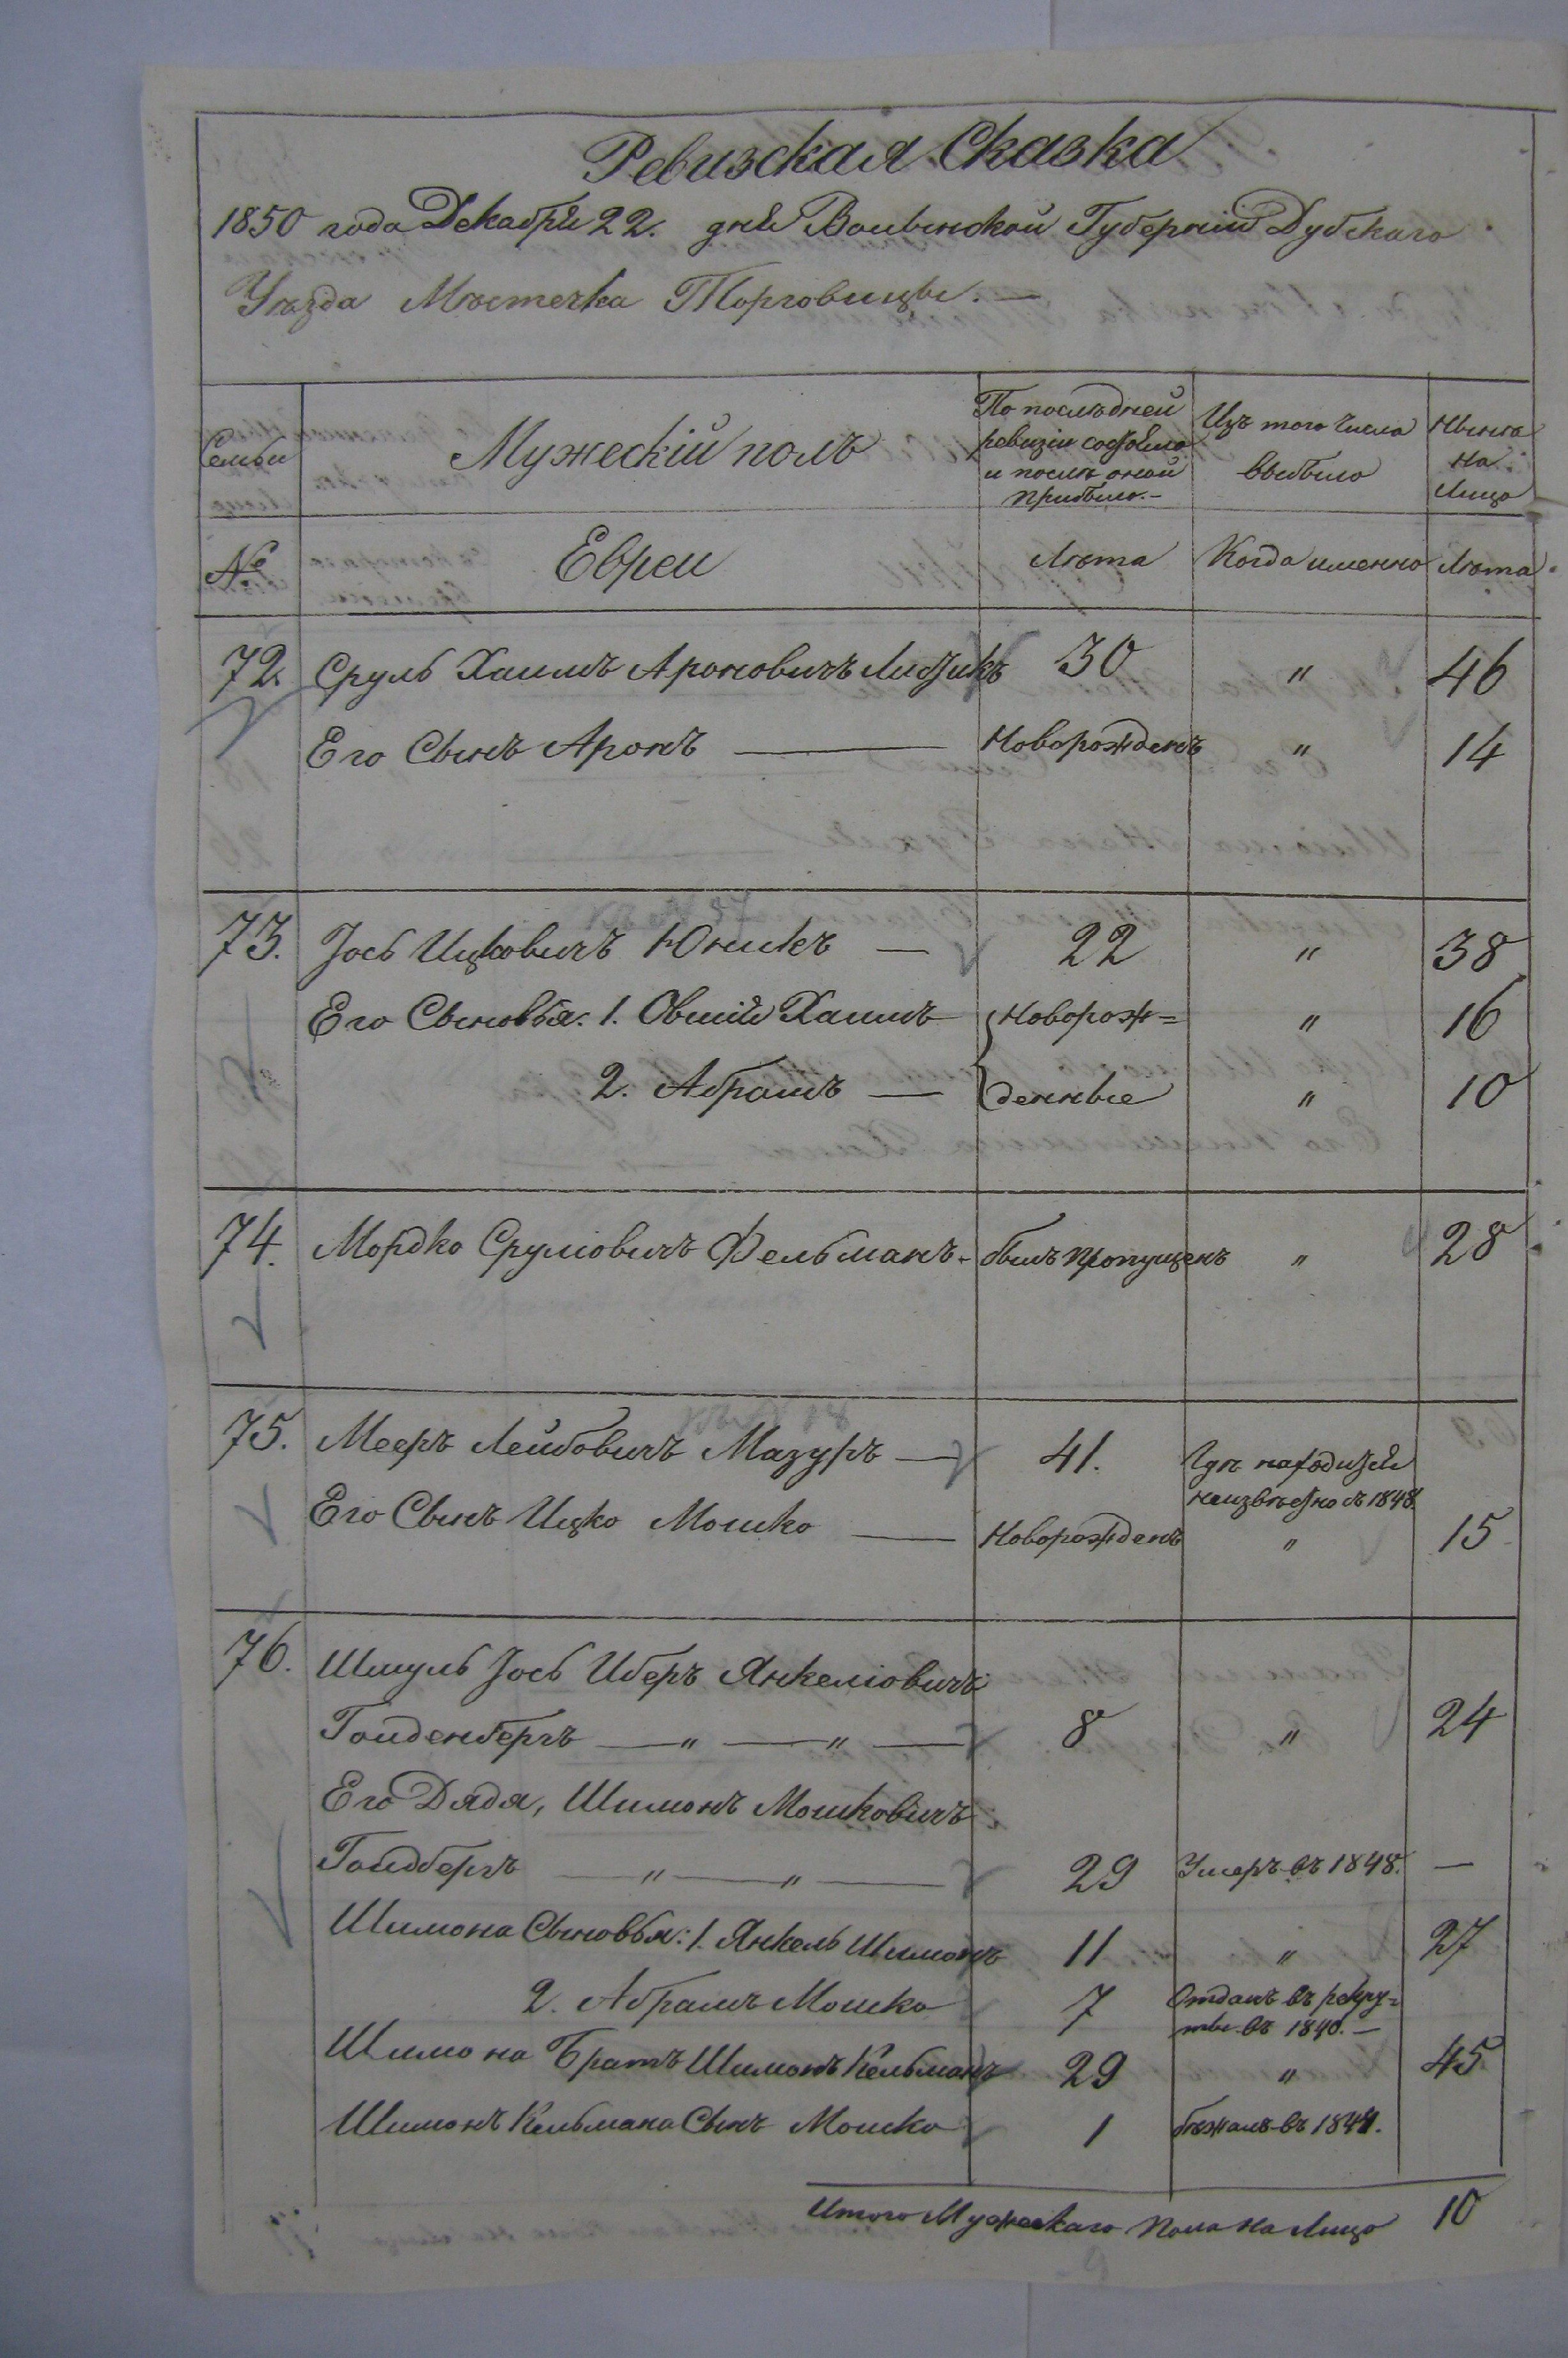 Ревизская Сказка
1850 года Декабря 22. дня Волынской Губерніи Дубскаго
Уѣзда Мѣстечка Торговицы. —
Семьи
Мужескій полъ
По послѣдней
ревизіи состояло
и послѣ оной
прибыло. —
Изъ того числа
выбыло
Нынѣ
на
Лицо
№
Евреи
Лѣта
Когда именно
Лѣта
72. Сруль Хаимъ Ароновичъ 30 " 46
Его Сынъ Аронъ — Новорожденъ " 14
73. Іось Ицковичъ Юникъ — 22 " 38
Его Сыновья: 1. Овшій Хаимъ Новорож= " 16
2. Абрамъ — денные " 10
74. Мордко Сруліовичъ Фельманъ - былъ пропущенъ " 28
75. Мееръ Лейбовичъ Мазуръ — 41. Гдѣ находится
неизвѣстно съ 1848
Его Сынъ Ицко Мошко — Новорожденъ " 15
76. Шмуль Іось Иберъ Янкеліовичъ
Голденбергъ — " — " — 8 " 24
Его Дядя, Шимонъ Мошковичъ
Голдбергъ — " — " — 29 Умеръ въ 1848. —
Шимона Сыновья: 1. Янкель Шимонъ 11 " 27
2. Абрамъ Мошко 7 Отданъ въ рекру=
ты въ 1840. —
Шимона Братъ Шимонъ Кельманъ 29 " 45
Шимонъ Кельмана Сынъ Мошко 1 бѣжалъ въ 1844.
Итого Мужескаго Пола на Лицо 10